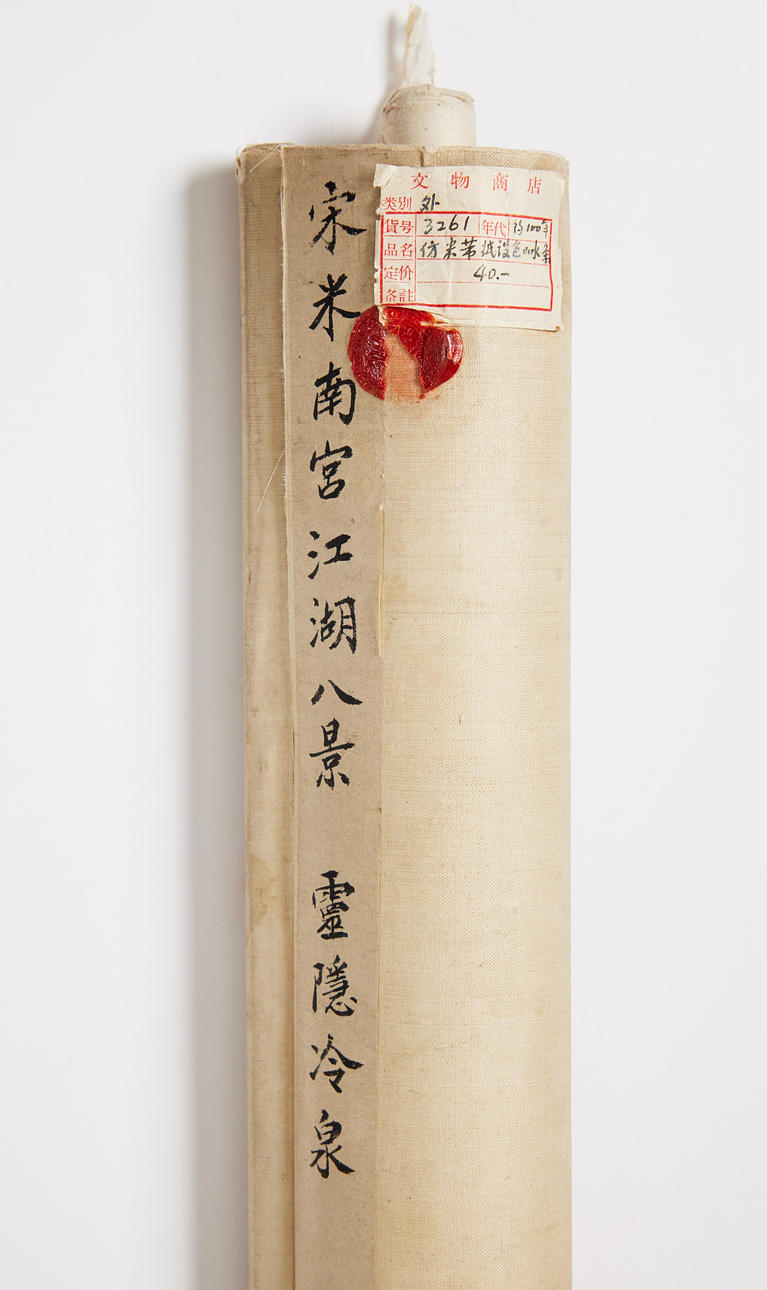 宋米南宮江湖八景 靈隱冷泉
文物商店
类別 外
貨号 3261 年代 约100年
品名 仿米芾纸设色山水条
定价 40.-
备註